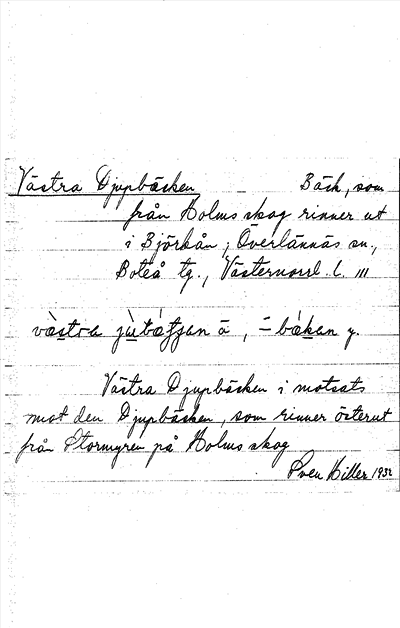 Västra Djupbäcken Bäck, som
från Holms skog rinner ut
i Björkån, Överlännäs sn.,
Boteå tg., Västernorrl. l. III
västra jùtbæ̀ʃʃan ä, – bækan y.
Västra Djupbäcken i motsats
mot den Djupbäcken, som rinner österut
från Stormyren på Holms skog
Sven Hiller 1932